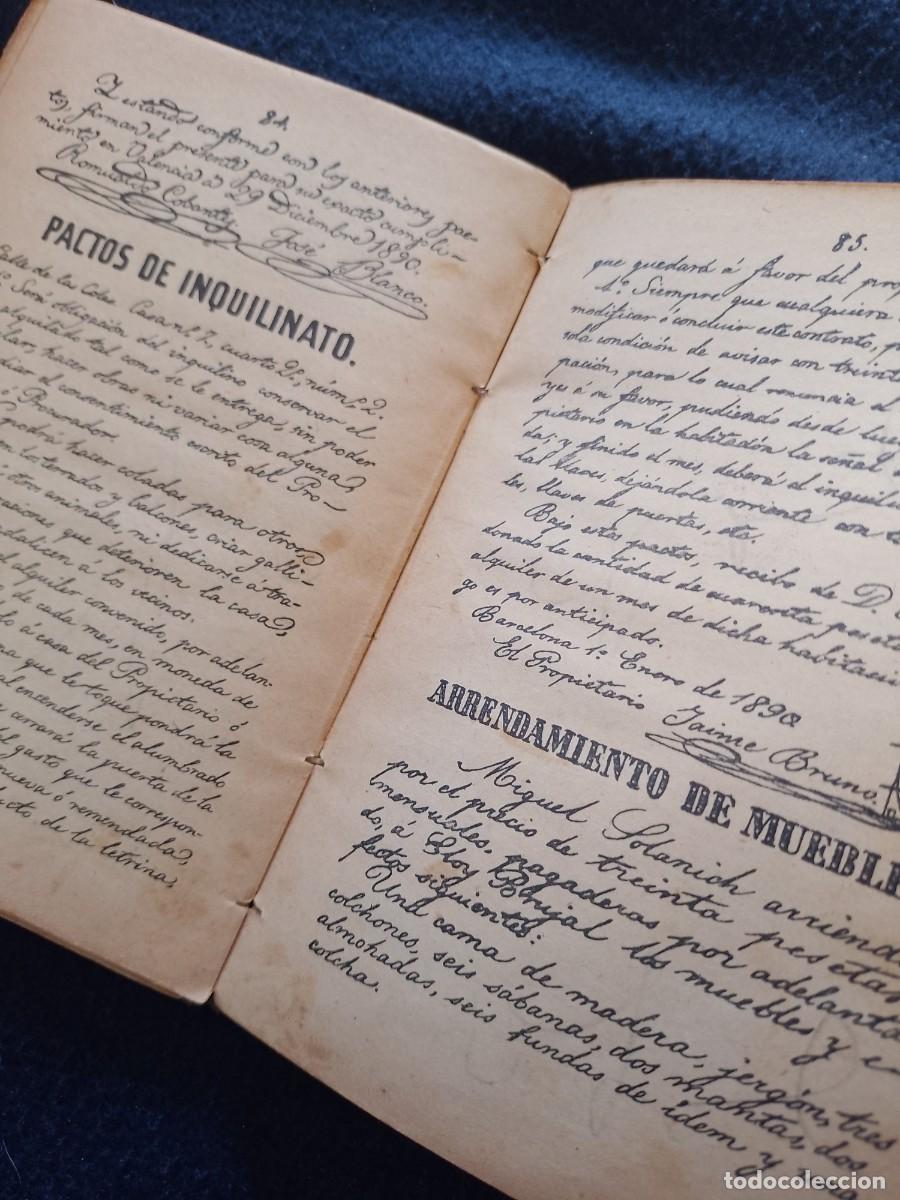 84.
Y estando conforme con los anteriores pac-
tos, firman el presente para su exacto cumpli-
miento en Valencia á 29 Diciembre 1890.
Romualdo Cobantes José Blanco.
PACTOS DE INQUILINATO.
Calle de las Cols Casa n.º 7, cuarto 2º, núm. 2.
Será obligación del inquilino conservar el
alquilado tal como se le entrega, sin poder
hacer obras ni variar cosa alguna,
el consentimiento escrito del Pro-
ó Procurador.
podrá hacer coladas para otros
terrados y balcones, criar galli-
otros animales, ni dedicarse á tra-
que deterioren la casa,
á los vecinos.
alquiler convenido, por adelan-
de cada mes, en moneda de
á casa del Propietario ó
que le toque pondrá la
al encenderse el alumbrado
cerrará la puerta de la
gasto que le correspon-
nueva ó remendada,
de la letrina,
85.
que quedará á favor del prop
4º Siempre que cualquiera
modificar ó concluir este contrato, p
sola condición de avisar con treint
pación, para lo cual renuncia el
yes á su favor, pudiendo desde lueg
pietario en la habitación la señal
da; y finido el mes, deberá el inquili
las llaves, dejándola corriente con
les, llaves de puertas, etc.
Bajo estos pactos, recibo de D.
donado la cantidad de cuarenta peset
alquiler de un mes de dicha habitació
go es por anticipado.
Barcelona 1º Enero de 1890
El Propietario Jaime Bruno.
ARRENDAMIENTO DE MUEBLE
Miguel Solanich arriend
por el precio de treinta pesetas
mensuales, pagaderas por adelanta
do, á Eloy Brujal los muebles y e-
fectos siguientes:
Una cama de madera, jergón, tres
colchones, seis sábanas, dos mantas, dos
almohadas, seis fundas de idem y
colcha.
todocoleccion